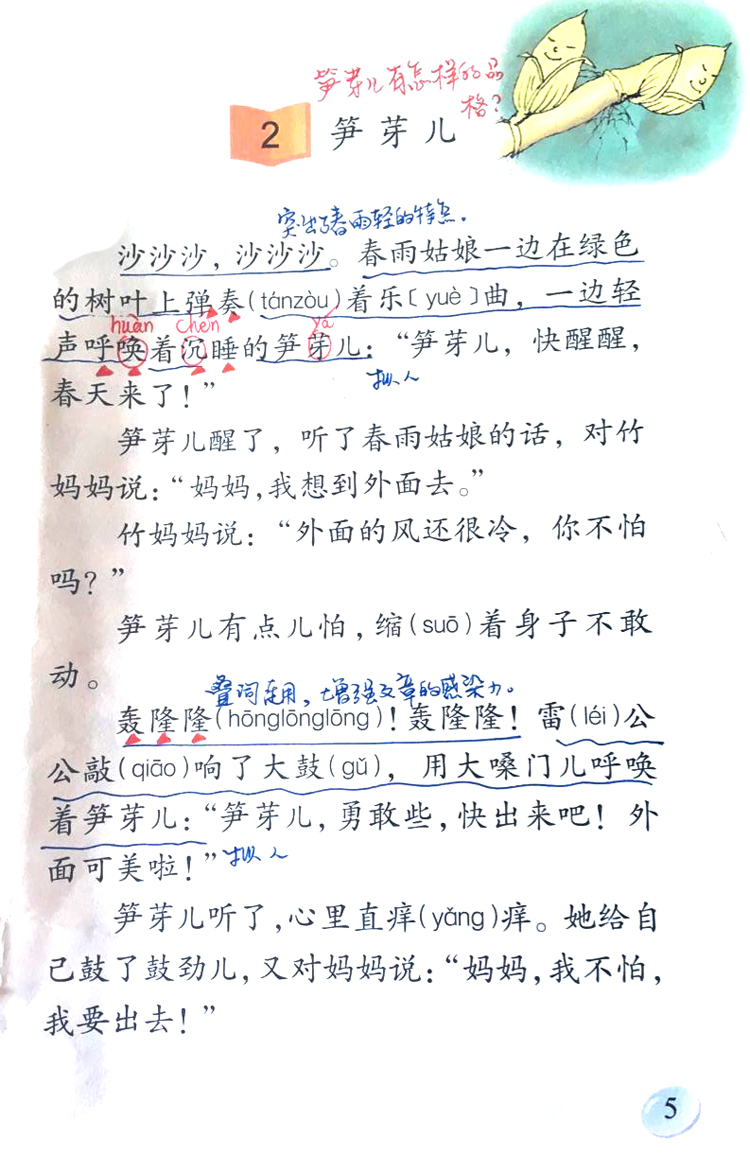 笋芽儿有怎样的品
格?
2 笋芽儿
突出了春雨轻的特点.
沙沙沙，沙沙沙。春雨姑娘一边在绿色
的树叶上弹奏(tánzòu)着乐〔yuè〕曲，一边轻
huàn chén yá
声呼唤着沉睡的笋芽儿：“笋芽儿，快醒醒，
拟人
春天来了！”
笋芽儿醒了，听了春雨姑娘的话，对竹
妈妈说：“妈妈，我想到外面去。”
竹妈妈说：“外面的风还很冷，你不怕
吗？”
笋芽儿有点儿怕，缩(suō)着身子不敢
动。
叠词运用，增强文章的感染力。
轰隆隆(hōnglōnglōng)！轰隆隆！雷(léi)公
公敲(qiāo)响了大鼓(gǔ)，用大嗓门儿呼唤
着笋芽儿：“笋芽儿，勇敢些，快出来吧！外
面可美啦！”
拟人
笋芽儿听了，心里直痒(yǎng)痒。她给自
己鼓了鼓劲儿，又对妈妈说：“妈妈，我不怕，
我要出去！”
5